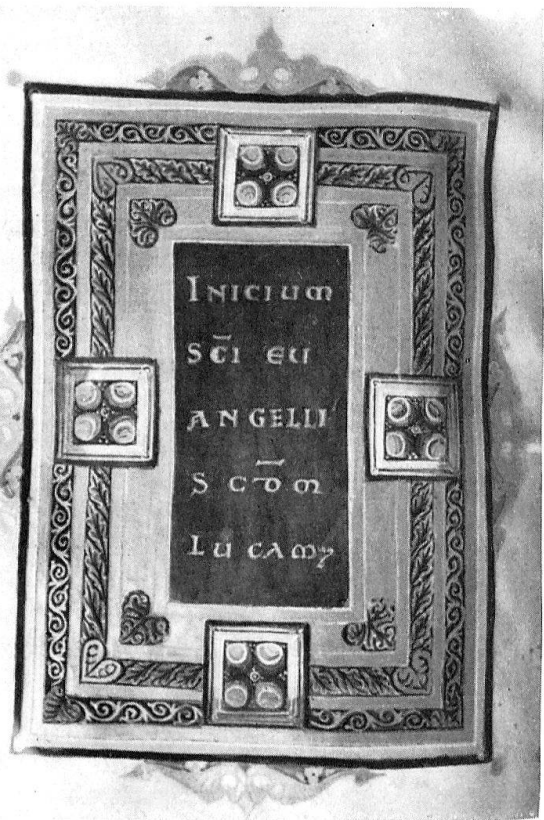 INICIUM
SC̄I EU
ANGELLI
SCD̄M
LUCAM